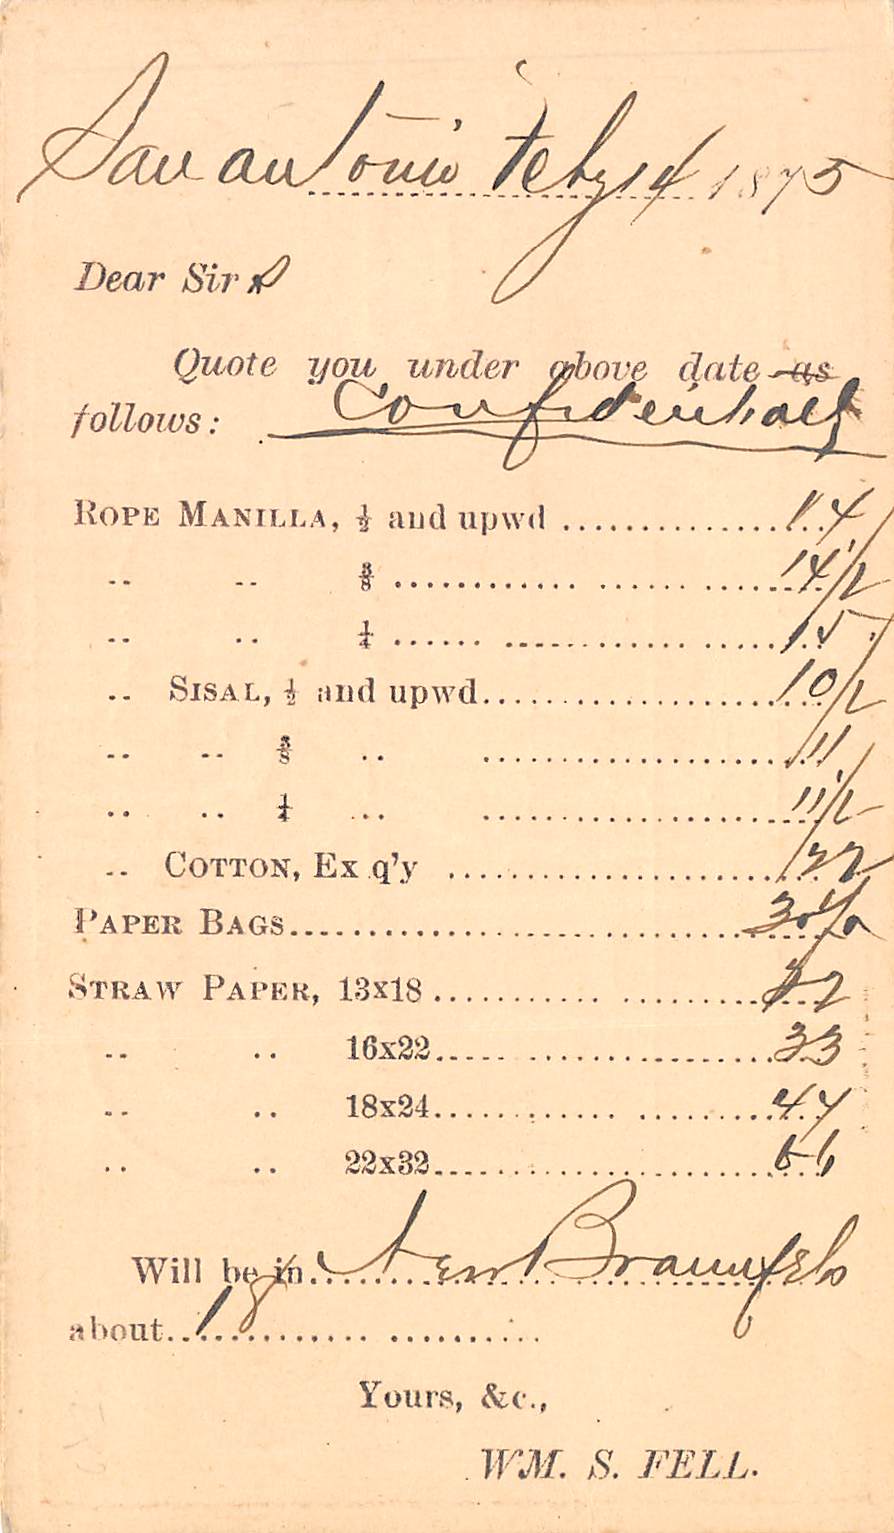 San Antonio Feby 14 1875
Dear Sirs
Quote you under above date as
follows: Confidentially
ROPE MANILLA, ½ and upwd ............ 14
.. .. ⅜ ............ 14 1/2
.. .. ¼ ............ 15
.. SISAL, ½ and upwd ............ 10 1/2
.. .. ⅜ .. ............ 11
.. .. ¼ ... ............ 11 1/2
.. COTTON, Ex q'y ............ 22
PAPER BAGS ............ 30 %
STRAW PAPER, 13x18 ............
.. .. 16x22 ............ 33
.. .. 18x24 ............ 44
.. .. 22x32 ............
Will be in New Braunfels
about 18
Yours, &c.,
WM. S. FELL.